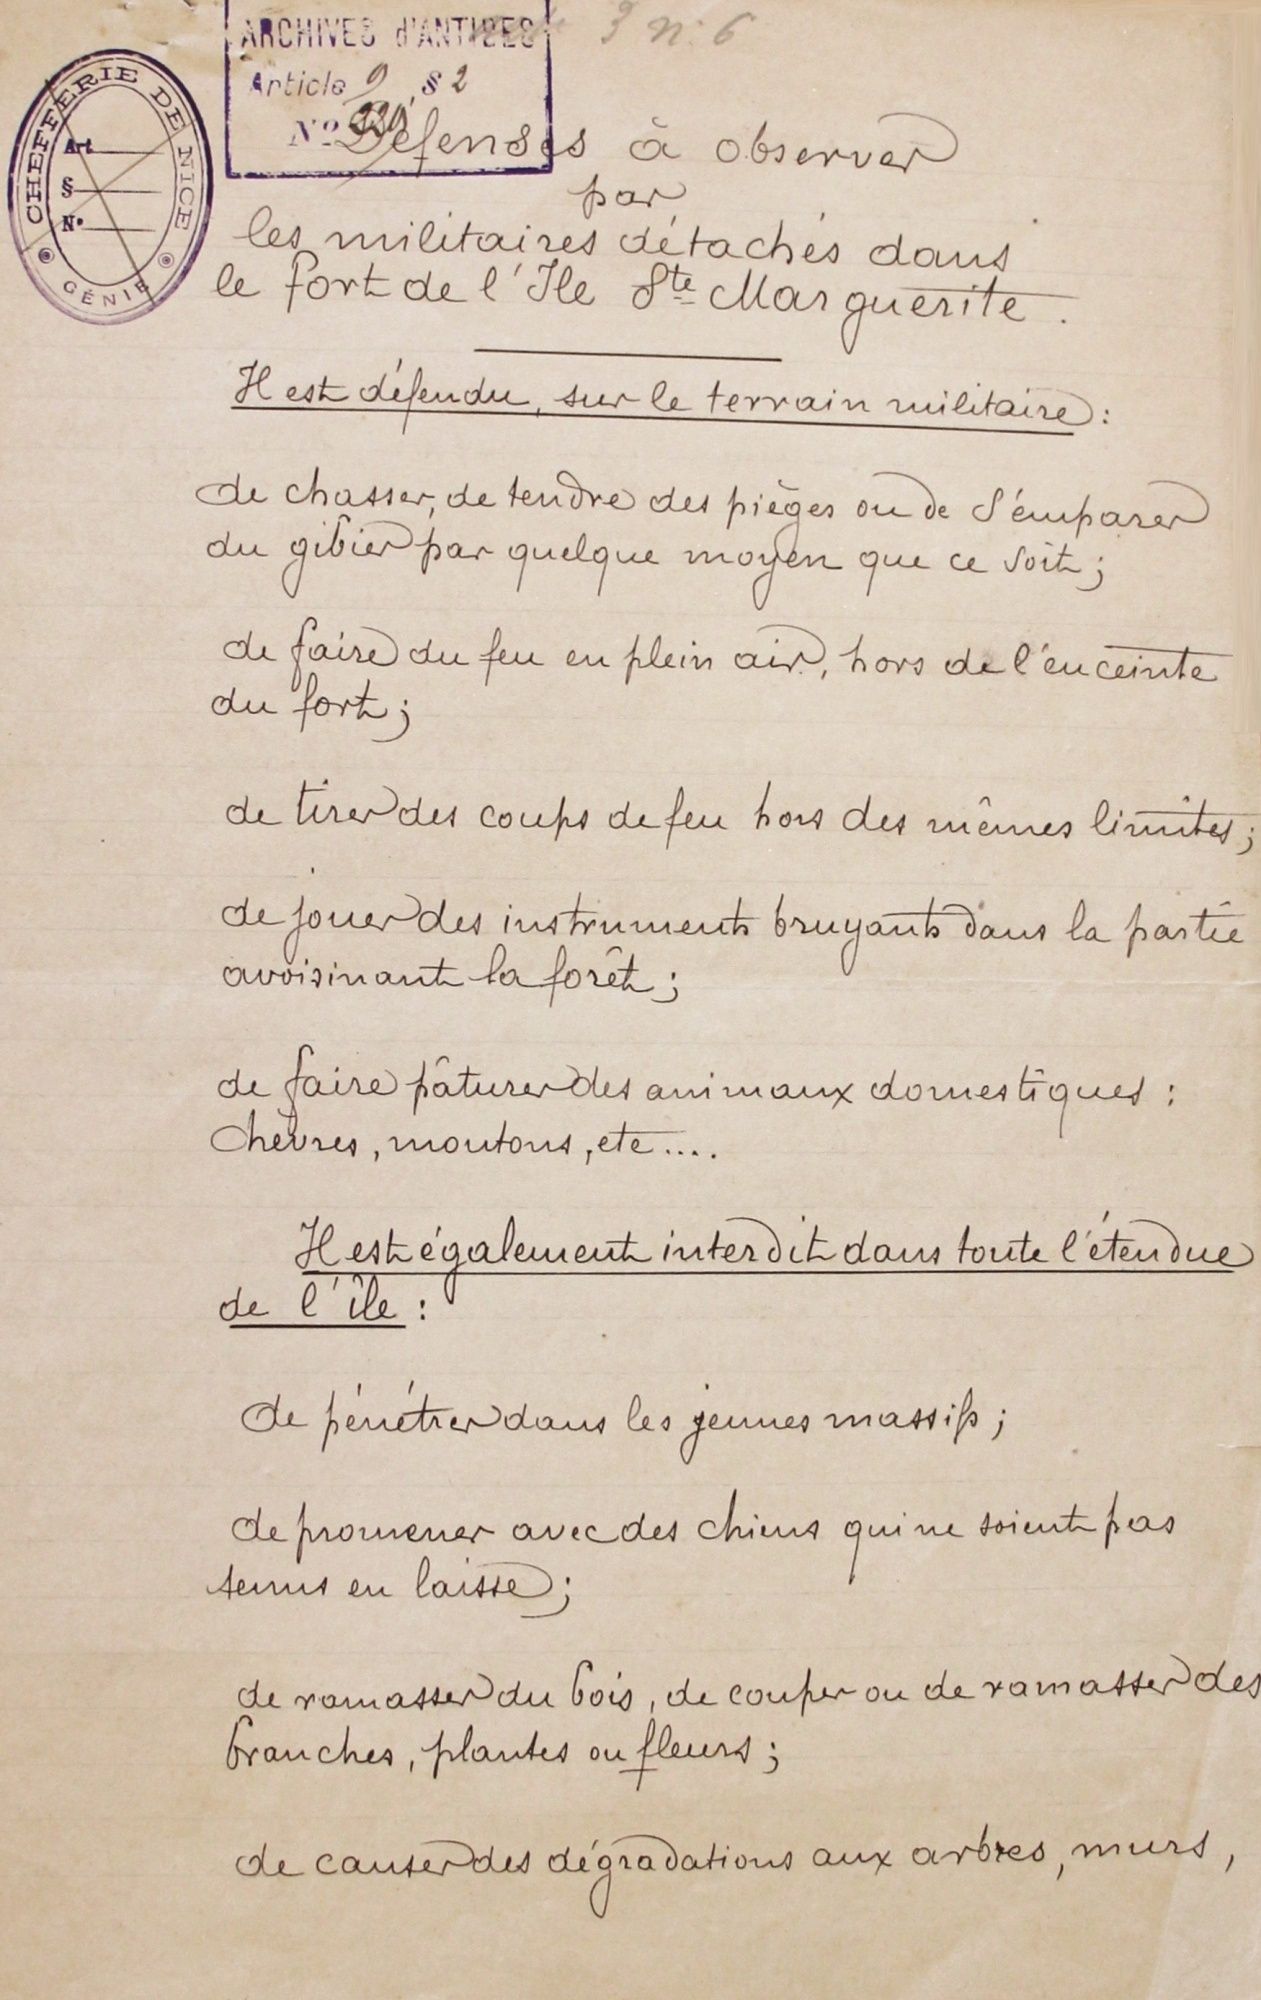 ARCHIVES d'ANTIBES
3 n: 6
Article 9 § 2
Nº
CHEFFERIE DE NICE
Art
§
Nº
GÉNIE
Défenses à observer
par
les militaires détachés dans
le fort de l'Ile Ste Marguerite.
Il est défendu, sur le terrain militaire :
de chasser, de tendre des pièges ou de s'emparer
du gibier par quelque moyen que ce soit ;
de faire du feu en plein air, hors de l'enceinte
du fort ;
de tirer des coups de feu hors des mêmes limites ;
de jouer des instruments bruyants dans la partie
avoisinant la forêt ;
de faire pâturer des animaux domestiques :
chèvres, moutons, etc....
Il est également interdit dans toute l'étendue
de l'île :
de pénétrer dans les jeunes massifs ;
de promener avec des chiens qui ne soient pas
tenus en laisse ;
de ramasser du bois, de couper ou de ramasser des
branches, plantes ou fleurs ;
de causer des dégradations aux arbres, murs,